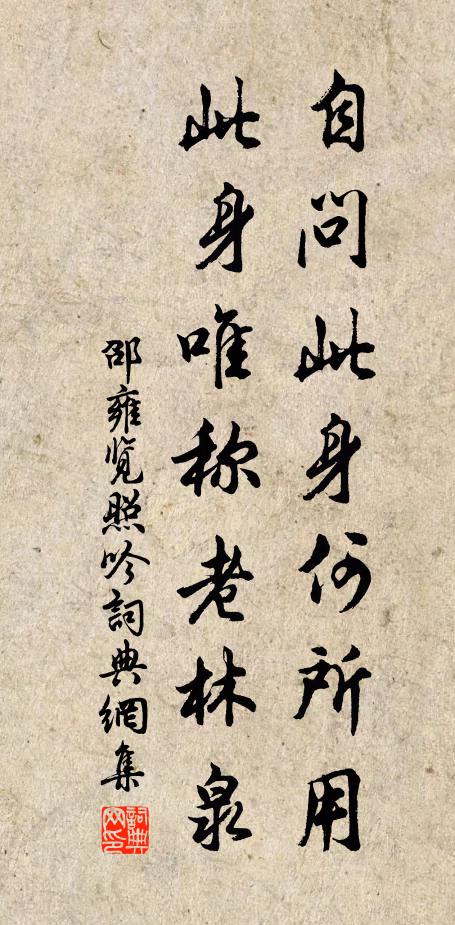 自问此身何所用
此身唯称老林泉
邵雍览照吟詞典網集
詞典
网印